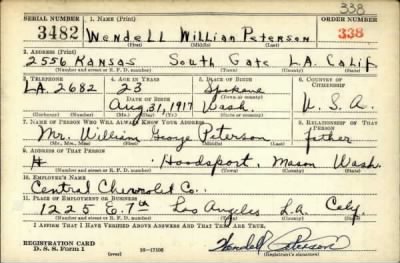 338
SERIAL NUMBER 1. Name (Print) ORDER NUMBER
3482 Wendell William Peterson 338
(First) (Middle) (Last)
2. Address (Print)
2556 Kansas South Gate L.A. Calif
(Number and street or R. F. D. number) (Town) (County) (State)
3. Telephone 4. Age in Years 5. Place of Birth 6. Country of Citizenship
LA. 2682 23 Spokane
Date of Birth (Town or county)
Aug 31, 1917 Wash. U. S. A.
(Exchange) (Number) (Mo.) (Day) (Yr.) (State or country)
7. Name of Person Who Will Always Know Your Address 8. Relationship of That Person
Mr. William George Peterson father
(Mr., Mrs., Miss) (First) (Middle) (Last)
9. Address of That Person
Hoodsport, Mason Wash.
(Number and street or R. F. D. number) (Town) (County) (State)
10. Employer's Name
Central Chevrolet Co.
11. Place of Employment or Business
1225 E. 7th Los Angeles L.A. Calif.
(Number and street or R. F. D. number) (Town) (County) (State)
I Affirm That I Have Verified Above Answers and That They Are True.
REGISTRATION CARD
D. S. S. Form 1 16—17105 Wendell Peterson
(over) (Registrant's signature)